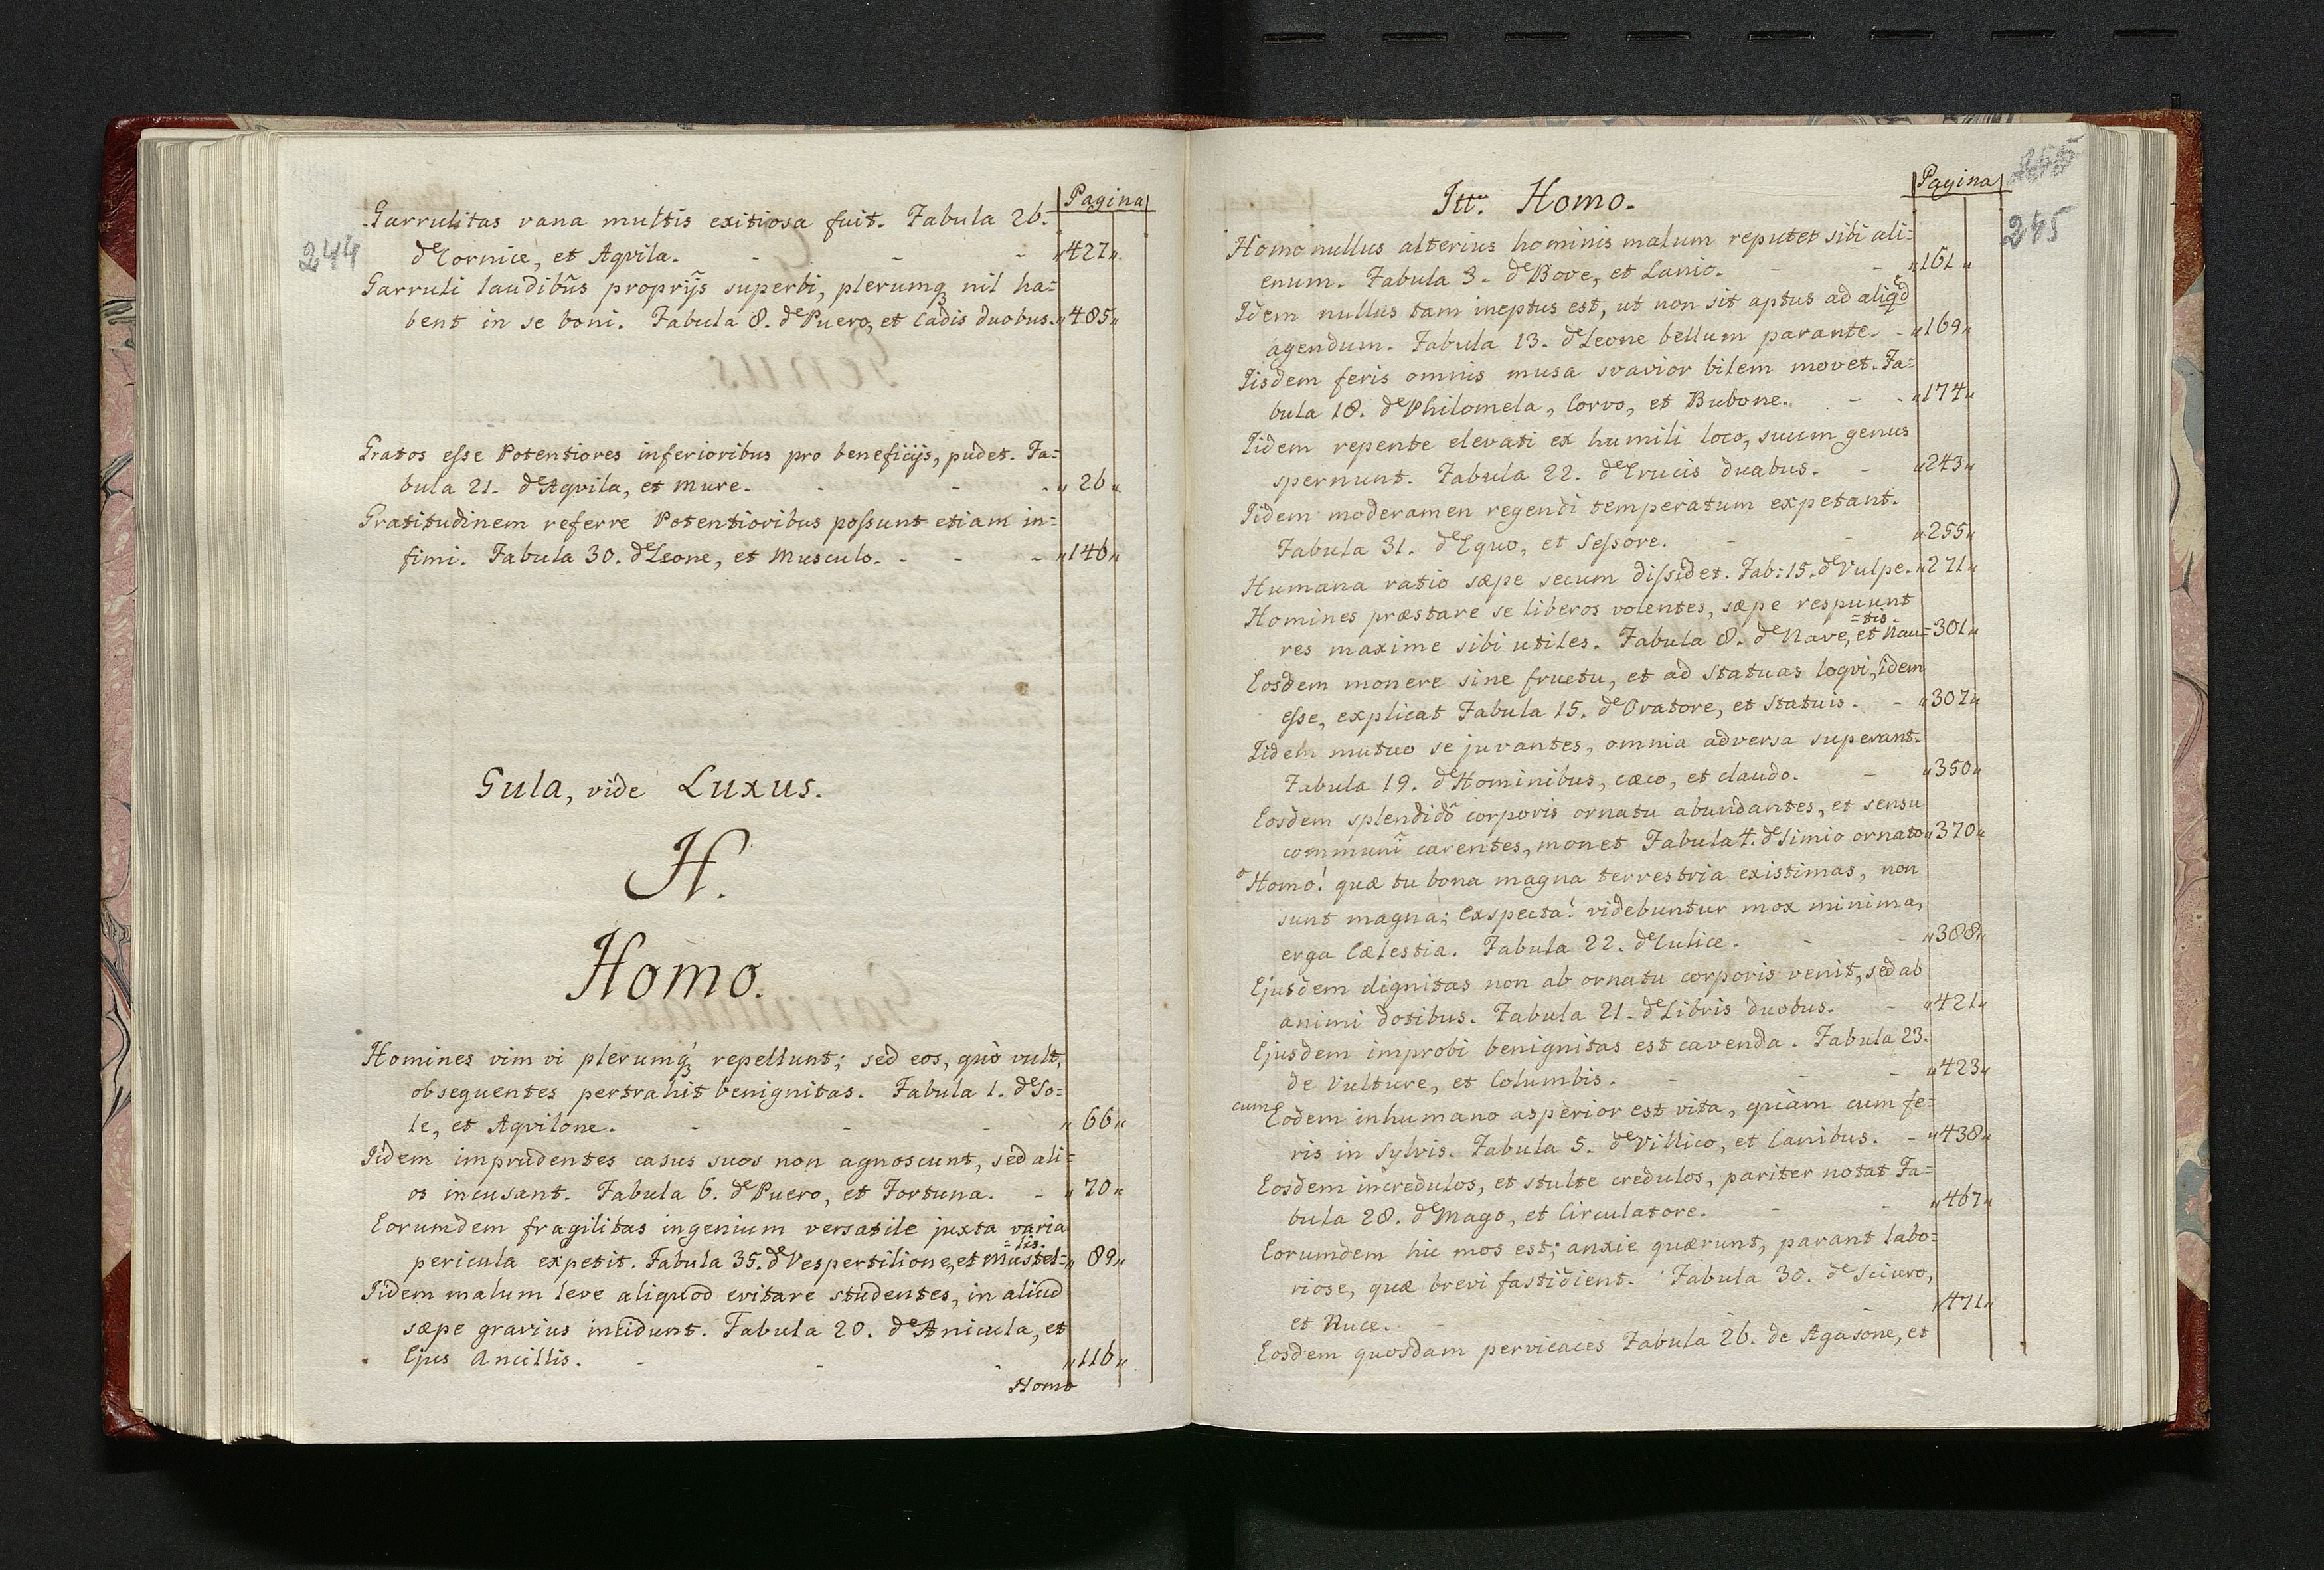 Pagina
Garrulitas vana multis exitiosa fuit. Fabula 26.
244
de Cornice, et Aqvila. - - - „427„
Garruli laudibus proprijs superbi, plerumq nil ha=
bent in se boni. Fabula 8. de Puero, et Cadis duobus. „485„
Gratos esse Potentiores inferioribus pro beneficijs, pudet. Fa=
bula 21. de Aqvila, et Mure. - - - „26„
Gratitudinem referre Potentioribus possunt etiam in=
fimi. Fabula 30. de Leone, et Musculo. - - - „146„
Gula, vide Luxus.
H.
Homo.
Homines vim vi plerumq repellunt; sed eos, quò vult,
obsequentes pertrahit benignitas. Fabula 1. de So=
le, et Aqvilone. - - - „66„
Iidem imprudentes casus suos non agnoscunt, sed ali=
os incusant. Fabula 6. de Puero, et Fortuna. - „70„
Eorumdem fragilitas ingenium versatile juxta varia
=lis.
pericula expetit. Fabula 35. de Vespertilione, et Mustel= „89„
Iidem malum leve aliquod evitare studentes, in aliud
sæpe gravius incidunt. Fabula 20. de Anicula, et
Ejus Ancillis. - - - „116„
Homo
Itt. Homo.
Pagina
255
245
Homo nullus alterius hominis malum reputet sibi ali=
enum. Fabula 3. de Bove, et Lanio. - - „161„
Idem nullus tam ineptus est, ut non sit aptus ad aliqd
agendum. Fabula 13. de Leone bellum parante. - „169„
Iisdem feris omnis musa svavior bilem movet. Fa=
bula 18. de Philomela, Corvo, et Bubone. - - „174„
Iidem repente elevati ex humili loco, suum genus
spernunt. Fabula 22. de Erucis duabus. - „243„
Iidem moderamen regendi temperatum expetant.
Fabula 31. de Equo, et Sessore. - - „255„
Humana ratio sæpe secum dissidet. Fab: 15. de Vulpe. „271„
Homines præstare se liberos volentes, sæpe respuunt
=tis
res maxime sibi utiles. Fabula 8. de Nave, et Nau= 301„
Eosdem monere sine fructu, et ad statuas loqvi, idem
esse, explicat Fabula 15. de Oratore, et Statuis. - „307„
Iidem mutuo se juvantes, omnia adversa superant.
Fabula 19. de Hominibus, cæco, et claudo. - „350„
Eosdem splendido corporis ornatu abundantes, et sensu
communi carentes, monet Fabula 4. de Simio ornato „370„
o Homo! quæ tu bona magna terrestria existimas, non
sunt magna; Exspecta! videbuntur mox minima,
erga Cælestia. Fabula 22. de Culice. - - „388„
Ejusdem dignitas non ab ornatu corporis venit, sed ab
animi dotibus. Fabula 21. de Libris duobus. - „421„
Ejusdem improbi benignitas est cavenda. Fabula 23.
de Vulture, et Columbis. - - - „423„
cum Eodem inhumano asperior est vita, quàm cum fe=
ris in Sylvis. Fabula 5. de Villico, et Canibus. - „438„
Eosdem incredulos, et stulte credulos, pariter notat Fa=
bula 28. de Mago, et Circulatore. - - „467„
Eorumdem hic mos est; anxie quærunt, parant labo=
riose, quæ brevi fastidient. Fabula 30. de Sciuro,
et Nuce. - - - „471„
Eosdem quosdam pervicaces Fabula 26. de Agasone, et